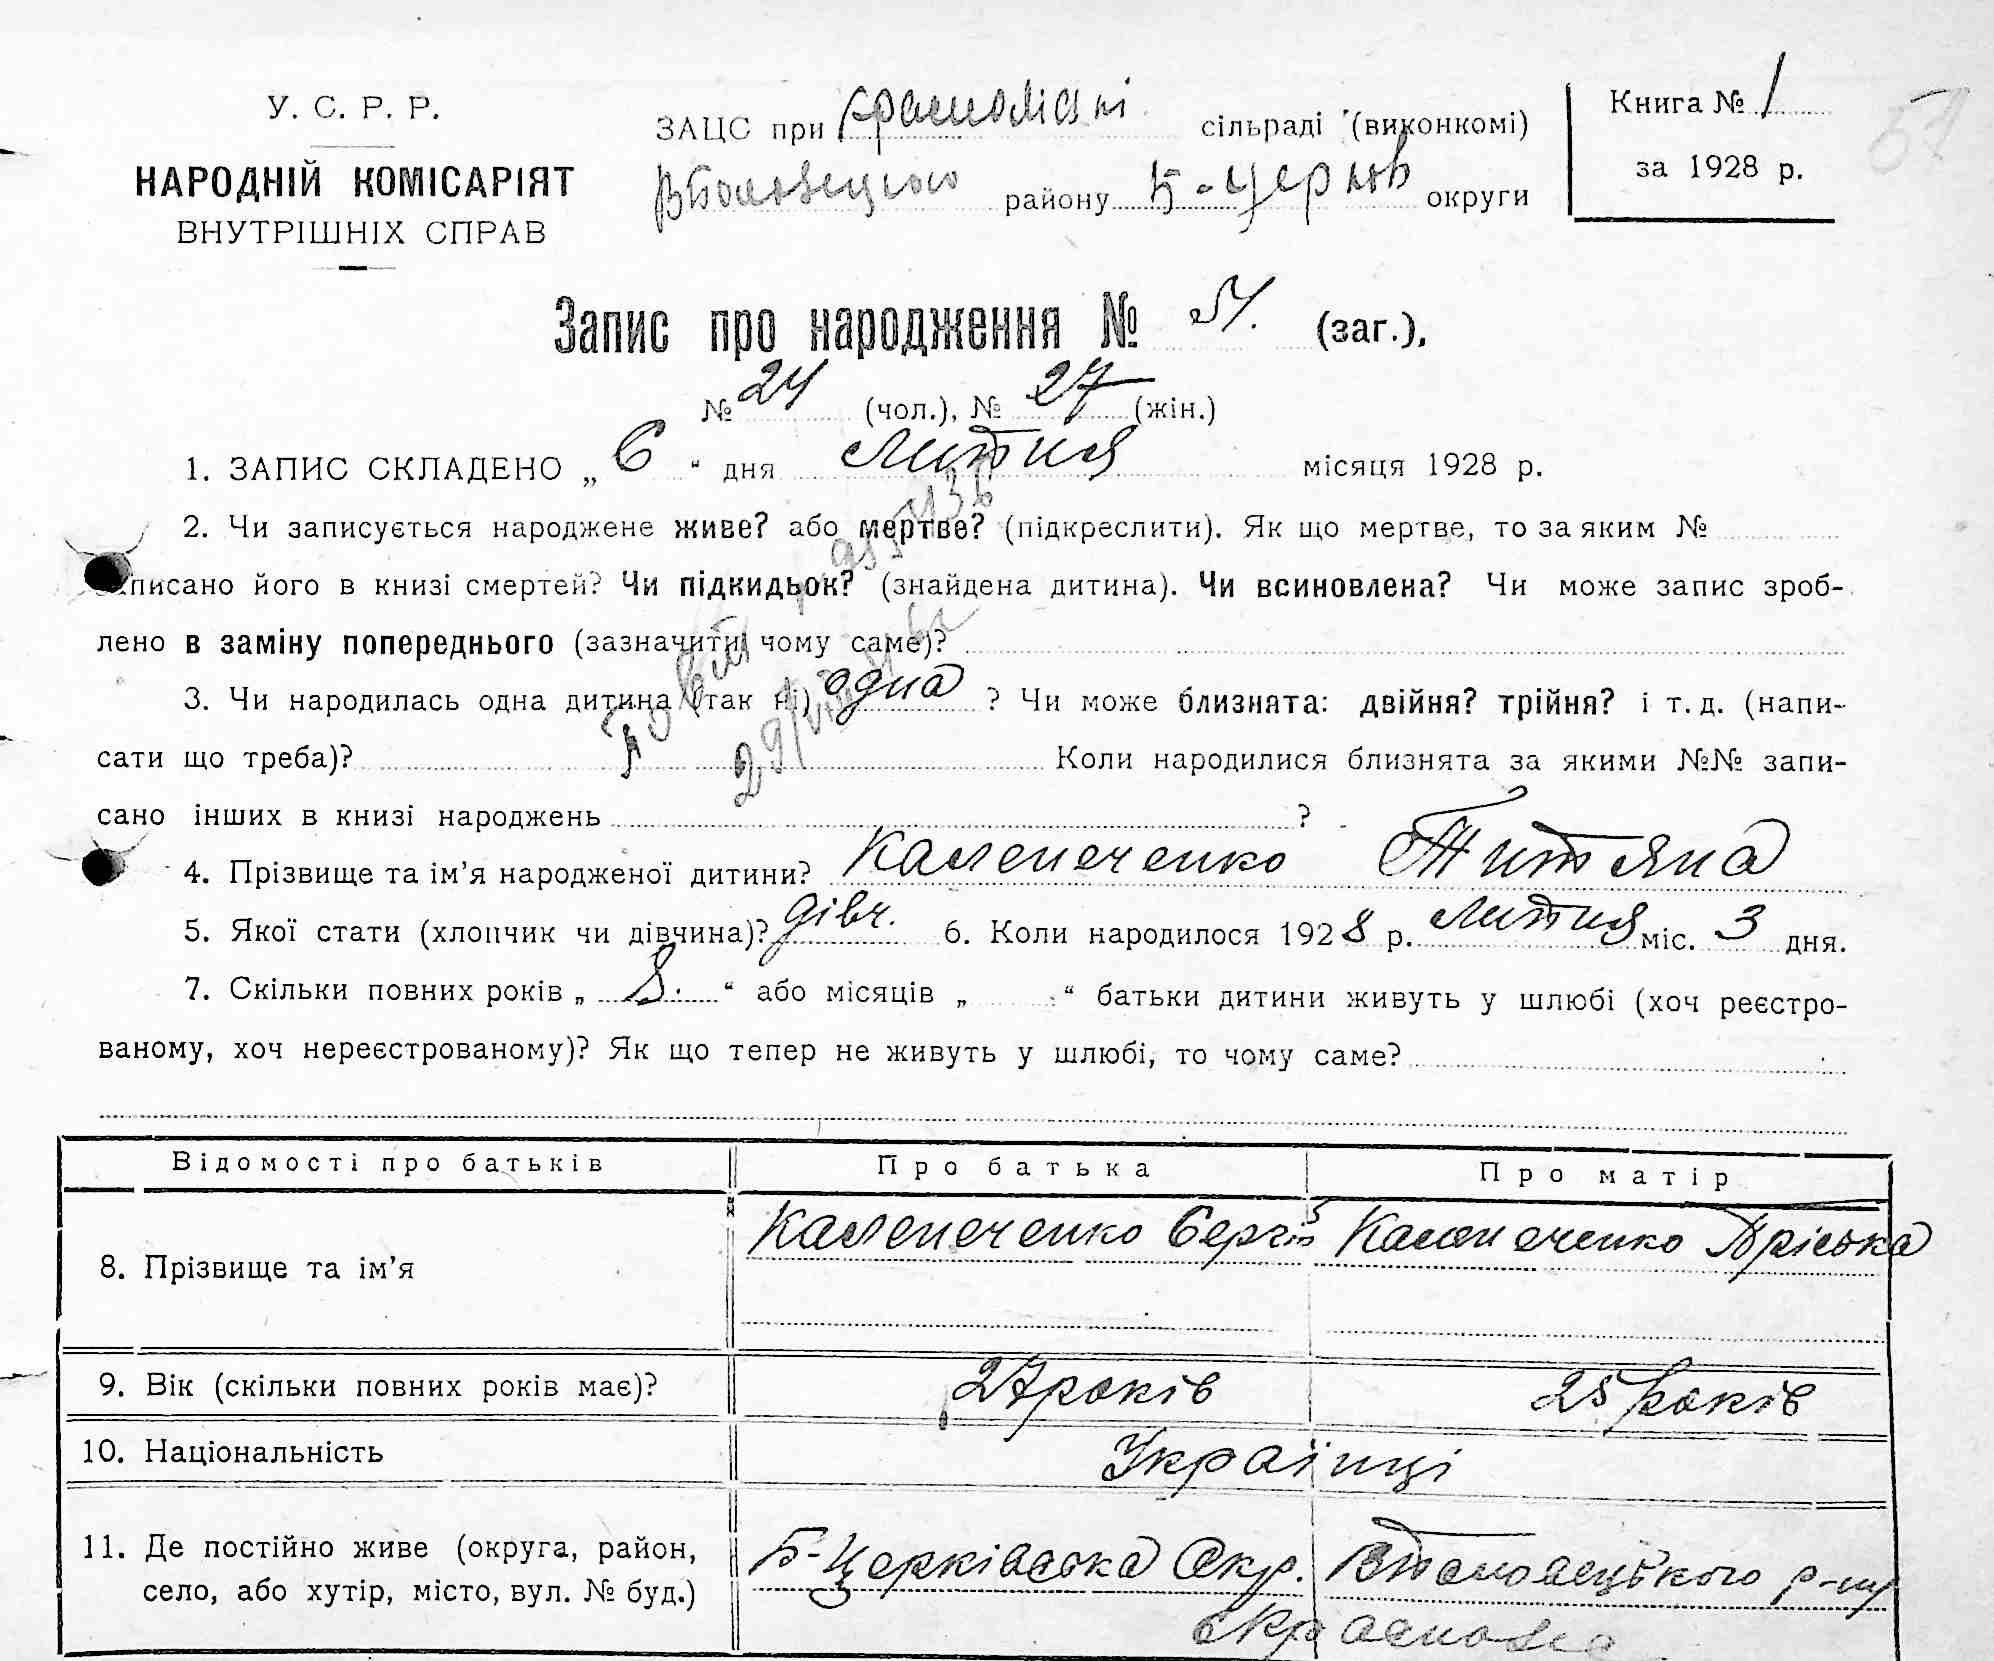 У. С. Р. Р.
НАРОДНІЙ КОМІСАРІЯТ
ВНУТРІШНІХ СПРАВ
ЗАЦС при сільраді (виконкомі)
району Б-Церків округи
Книга № 1
за 1928 р.
51
Запис про народження № 51. (заг.),
№ 24 (чол.), № 27 (жін.)
1. ЗАПИС СКЛАДЕНО „ 6 “ дня Лютня місяця 1928 р.
2. Чи записується народжене живе? або мертве? (підкреслити). Як що мертве, то за яким №
записано його в книзі смертей? Чи підкидьок? (знайдена дитина). Чи всиновлена? Чи може запис зроб-
лено в заміну попереднього (зазначити чому саме)?
3. Чи народилась одна дитина (так ні) одна ? Чи може близнята: двійня? трійня? і т. д. (напи-
сати що треба)? Коли народилися близнята за якими №№ запи-
сано інших в книзі народжень ?
4. Прізвище та ім’я народженої дитини? Каленеченко Титяна
5. Якої стати (хлопчик чи дівчина)? дівч. 6. Коли народилося 1928 р. Лютня міс. 3 дня.
7. Скільки повних років „ 8. “ або місяців „ “ батьки дитини живуть у шлюбі (хоч реєстро-
ваному, хоч нереєстрованому)? Як що тепер не живуть у шлюбі, то чому саме?
Відомості про батьків Про батька Про матір
8. Прізвище та ім’я Каленеченко Сергій Каленеченко Пріська
9. Вік (скільки повних років має)? 27 років 25 років
10. Національність Українці
11. Де постійно живе (округа, район,
село, або хутір, місто, вул. № буд.)
Б-Церківська Окр. р-ну